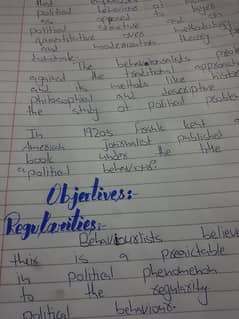 political behaviour at
as opposed to
political structure
quantitative over methodology
and theory
The behaviouralists
against the traditional approach
and its methods like
philosophical and descriptive
the study of political
In 1920s Frank kent a
American journalist published a
book under the title
"political behaviour".
Objectives:-
Regularities:-
Behaviourlists believe
this is a predictable
in political phenomenon
to the regularity
political behaviour